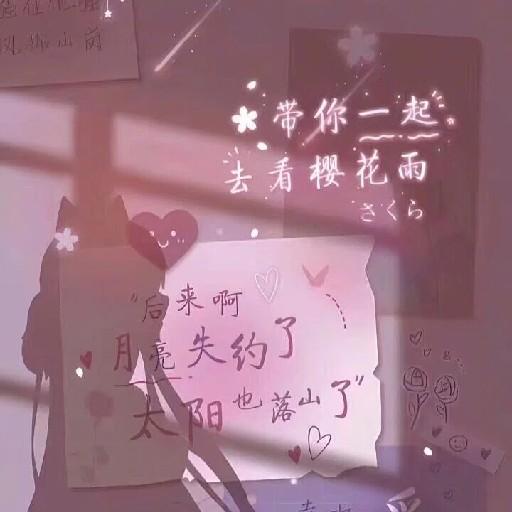 带你一起
去看樱花雨
さくら
"后来啊
月亮失约了
太阳也落山了"